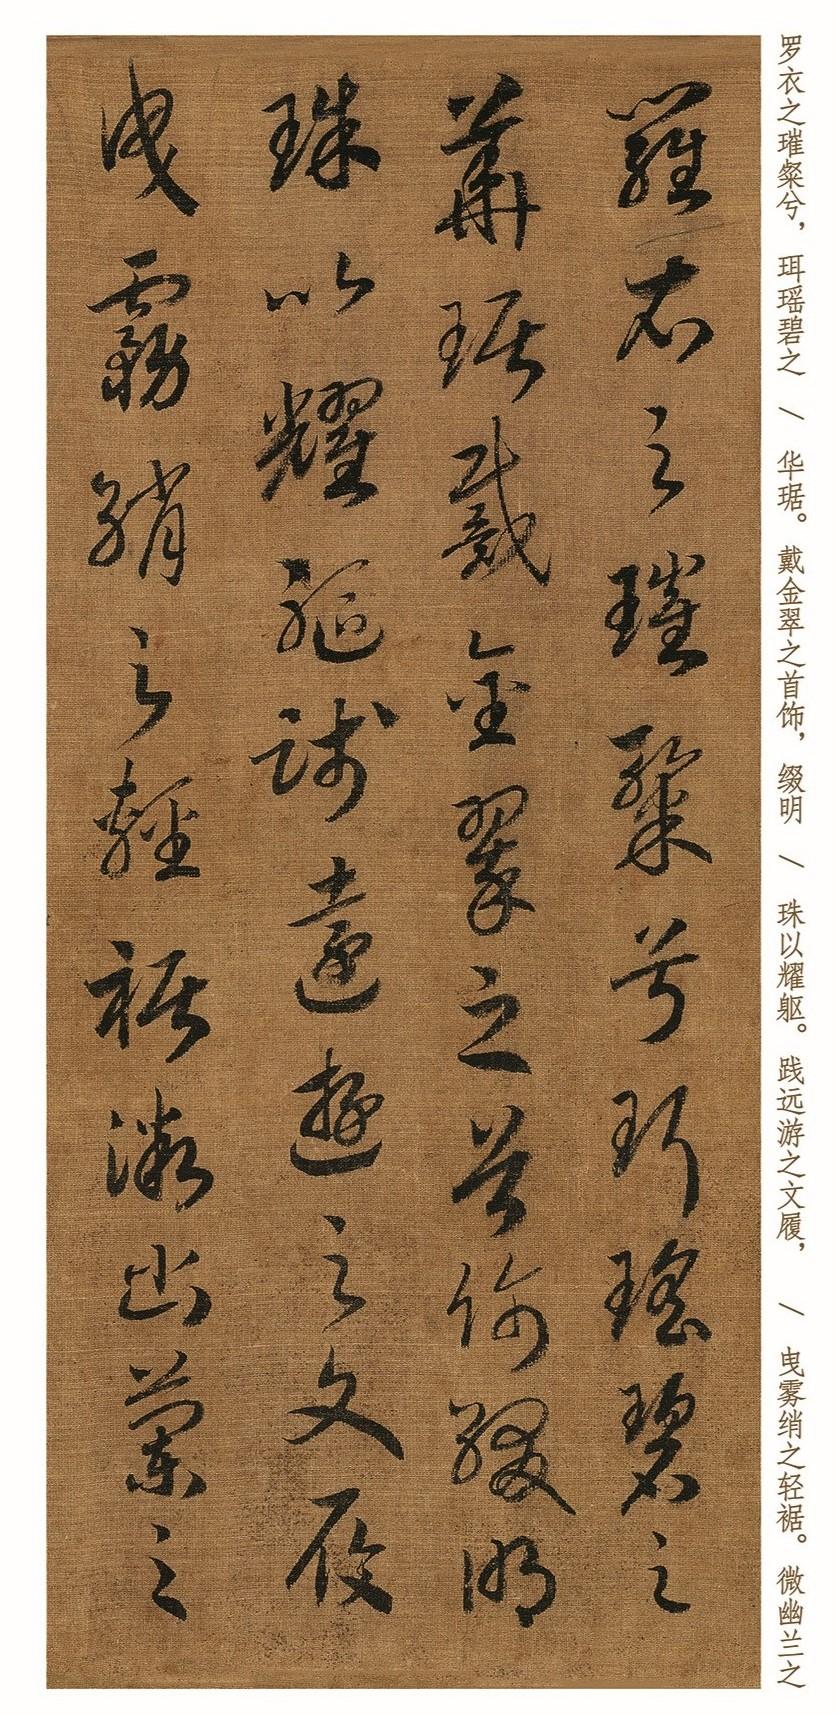 羅衣之璀粲兮珥瑤碧之
華琚戴金翠之首飾綴明
珠以耀軀踐遠遊之文履
曳霧綃之輕裾微幽蘭之
罗衣之璀粲兮，珥瑶碧之 \ 华琚。戴金翠之首饰，缀明 \ 珠以耀躯。践远游之文履， \ 曳雾绡之轻裾。微幽兰之